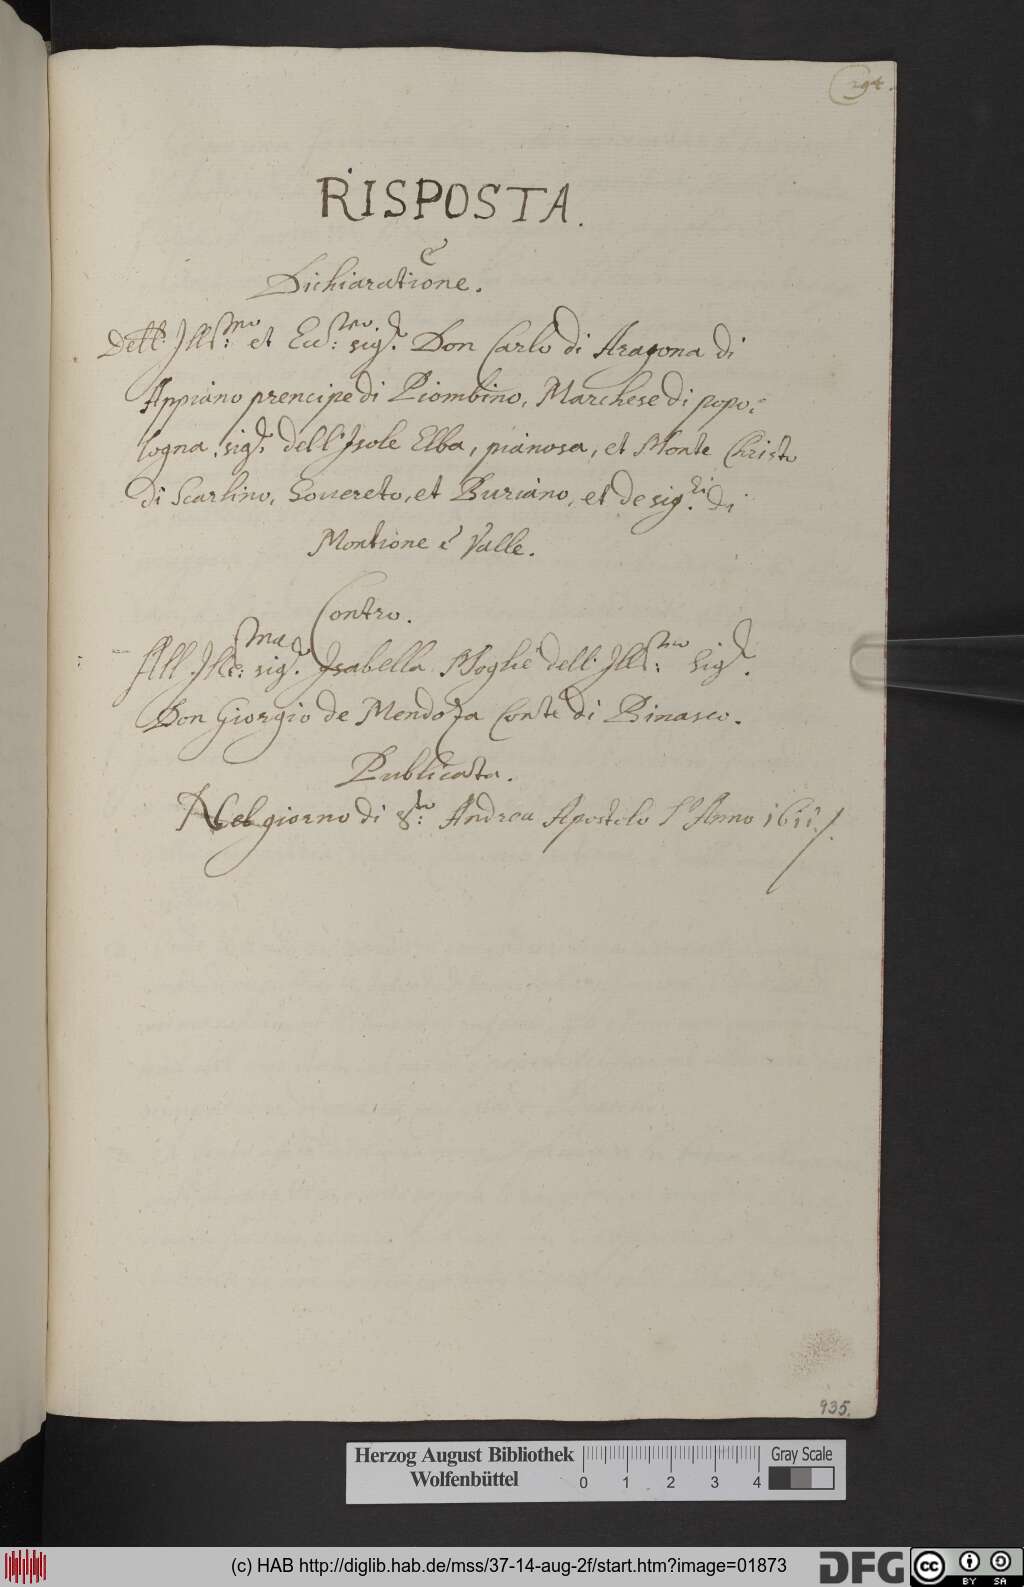 294.
RISPOSTA.
e
Dichiaratione.
Dell'. Ill:mo et Ecc:mo sig.r Don Carlo di Aragona di
Appiano prencipe di Piombino, Marchese di popo:
logna. sig.r dell'Isole Elba, pianosa, et Monte Christo
di Scarlino, Souereto, et Buriano, et de sig.ri di
Montione è Valle.
Contro.
All. Ill:ma sig.ra Isabella. Moglie dell. Ill:mo sig.r
Don Giorgio de Mendoza Conte di Binasco.
Publicata.
Nel giorno di S:to Andrea Apostolo l'Anno 1611./.
935.
Herzog August Bibliothek
Wolfenbüttel
0 1 2 3 4
Gray Scale
(c) HAB http://diglib.hab.de/mss/37-14-aug-2f/start.htm?image=01873
DFG
cc BY SA